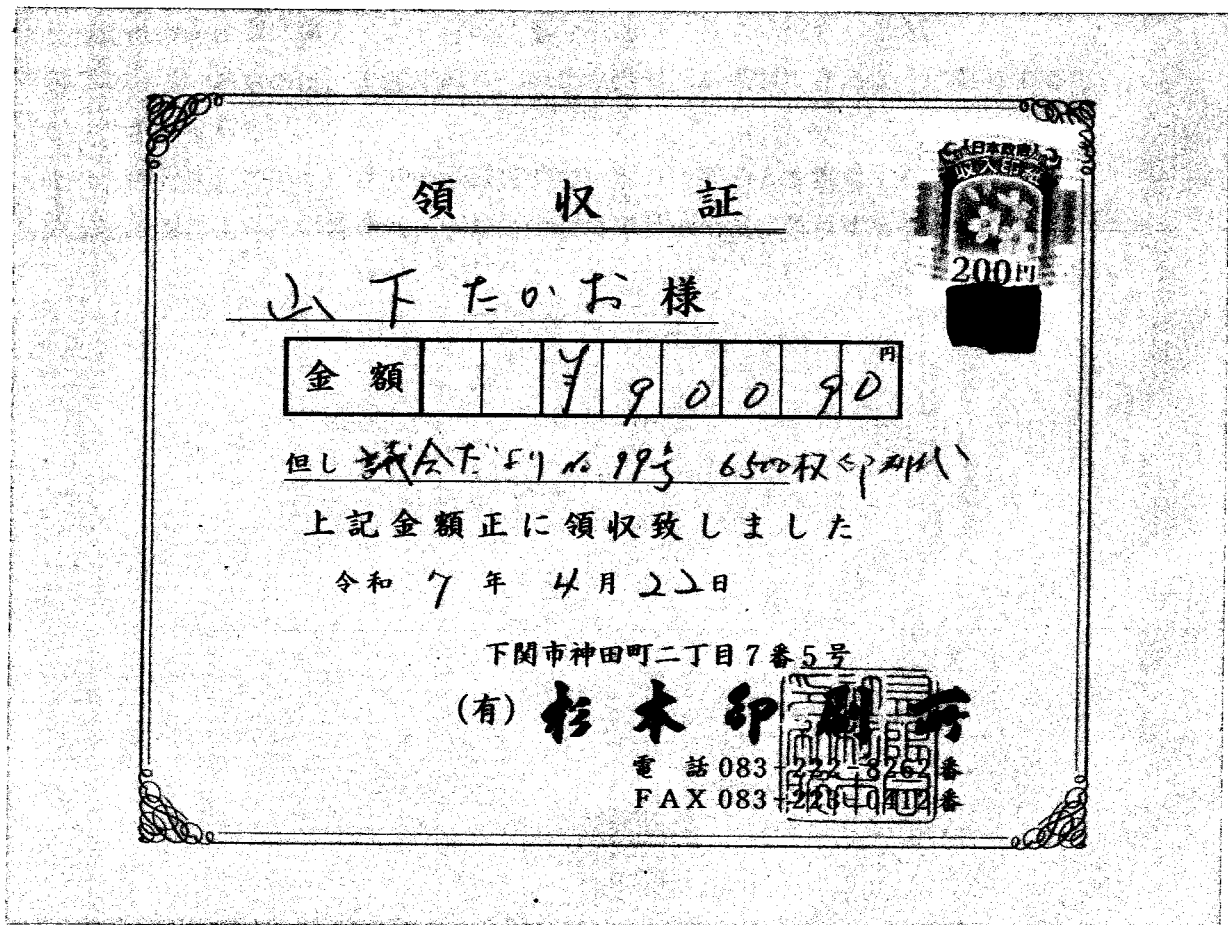 領収証
日本政府
収入印紙
200円
山下たかお様
金額 ¥90090円
但し 議会だより No 99号 6500枚 印刷代
上記金額正に領収致しました
令和7年4月22日
下関市神田町二丁目7番5号
(有) 杉本印刷所
電話 083-222-8262番
FAX 083-223-0412番